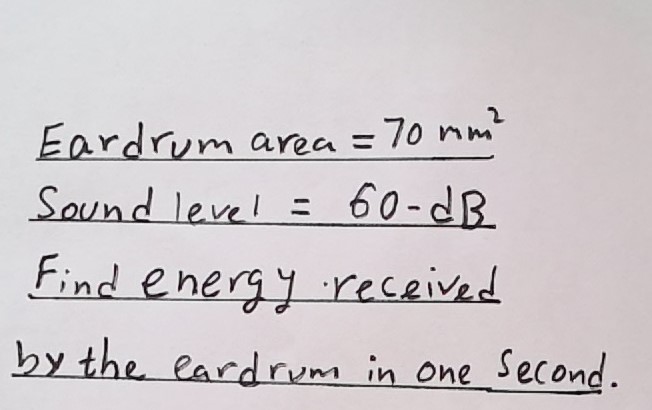 Eardrum area = 70 mm²
Sound level = 60-dB
Find energy received
by the eardrum in one second.